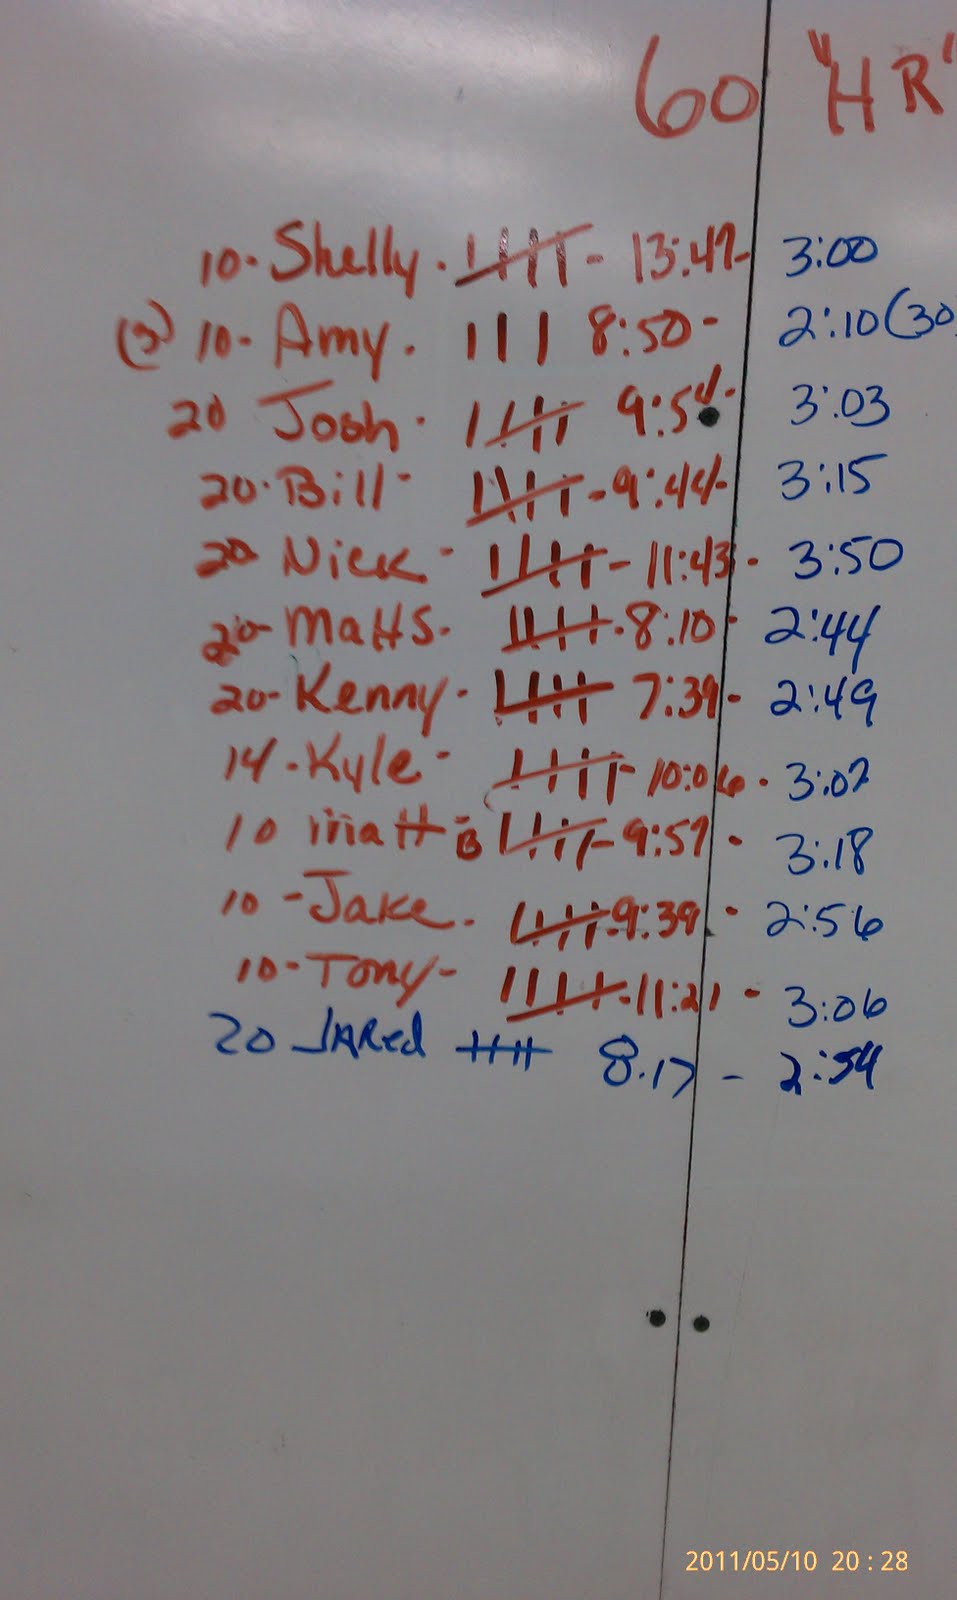 60 "HR"
10- Shelly - 13:47- 3:00
(3) 10- Amy. III 8:50- 2:10 (30
20 Josh - 9:54- 3:03
20- Bill - 9:44- 3:15
20 Nick - 11:43- 3:50
20- Matt S. - 8:10- 2:44
20- Kenny - 7:39- 2:49
14 - Kyle - 10:06- 3:02
10 Matt B - 9:57- 3:18
10 - Jake - 9:39- 2:56
10- Tony - 11:21- 3:06
20 JARed 8:17 - 2:54
2011/05/10 20:28